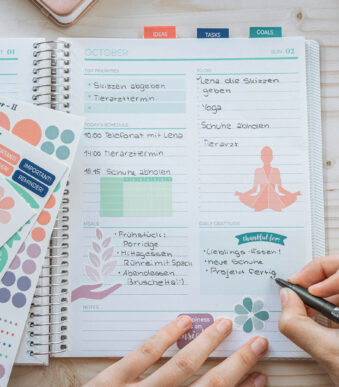 IDEAS
TASKS
GOALS
01
OCTOBER
SUN 02
TOP PRIORITIES
Skizzen abgeben
Tierarzttermin
TODAY'S SCHEDULE
10:00 Telefonat mit Lena
14:00 Tierarzttermin
Schuhe abholen
Lena die Skizzen
geben
Yoga
Schuhe abholen
Tierarzt
MEALS
Frühstück:
Porridge
Mittagessen
mit Speck
Abendessen
Bruschetta!
DAILY GRATITUDE
thankful for:
Lieblings-Essen!
neue Schuhe
Projekt fertig
NOTES
IMPORTANT
REMINDER